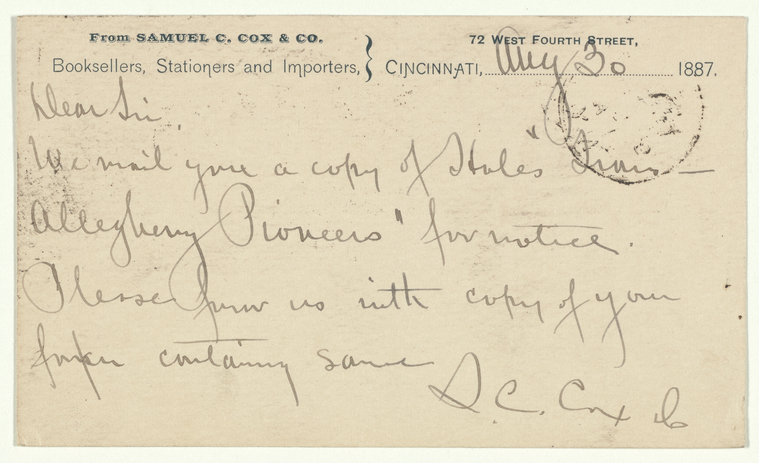 From SAMUEL C. COX & CO.
Booksellers, Stationers and Importers,
72 WEST FOURTH STREET,
CINCINNATI, Aug 30 1887.
Dear Sir
We mail you a copy of Hales "Trans-
Allegheny Pioneers" for notice.
Please favor us with copy of your
paper containing same
S. C. Cox & Co